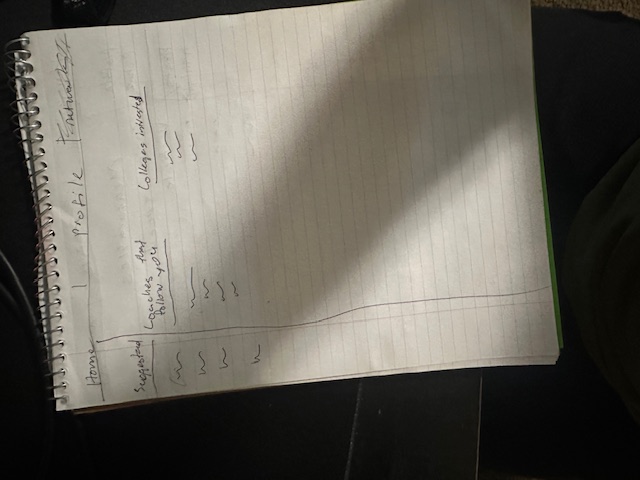 Home | profile
Suggested
Coaches that
follow you
Colleges intrested